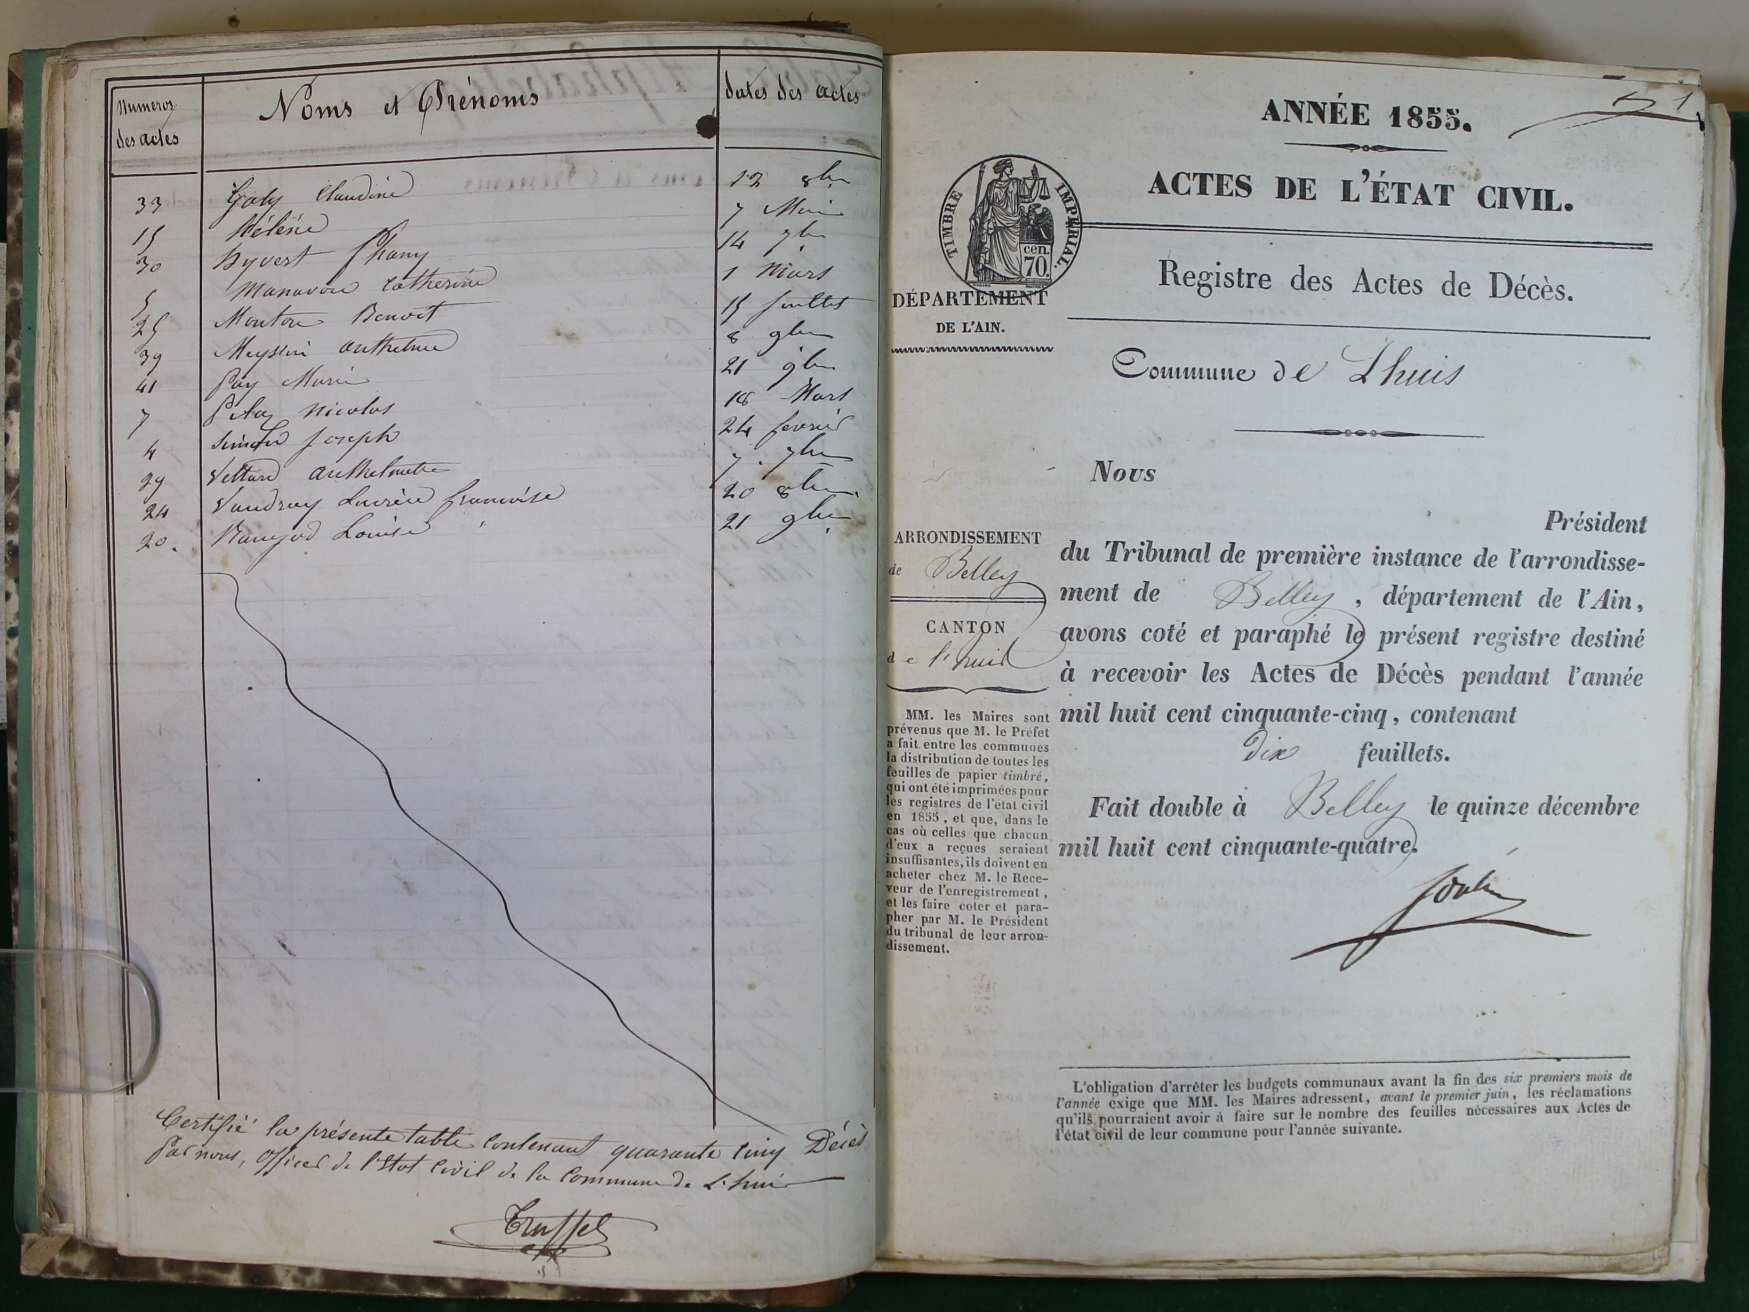 Numeros des actes
Noms et Prénoms
dates des actes
33 Goly Claudine 12 8bre
15 Hélène 7 Mai
30 hyvert fhany 14 7bre
5 Manavon Catherine 1 Mars
25 Mouton Benoit 15 Juillet
39 Meyssin anthelme 8 9bre
41 Pay Marie 21 9bre
7 Nicolas 18 Mars
4 Joseph 24 fevrier
29 Vettard anthelmette 7 7bre
24 Vaudray Lucrèce francoise 20 8bre
20. Louise 21 9bre
Certifié la présente table contenant quarante cinq Décès
Par nous, officier de l'état civil de la commune de Lhuis
Truffet
1
ANNÉE 1855.
ACTES DE L'ÉTAT CIVIL.
TIMBRE IMPÉRIAL.
cen.
70.
DÉPARTEMENT
DE L'AIN.
Registre des Actes de Décès.
Commune de Lhuis
Nous
Président
du Tribunal de première instance de l'arrondisse-
ment de Belley, département de l'Ain,
avons coté et paraphé le présent registre destiné
à recevoir les Actes de Décès pendant l'année
mil huit cent cinquante-cinq, contenant
dix feuillets.
Fait double à Belley le quinze décembre
mil huit cent cinquante-quatre.
ARRONDISSEMENT
de Belley
CANTON
de l'huis
MM. les Maires sont
prévenus que M. le Préfet
a fait entre les communes
la distribution de toutes les
feuilles de papier timbré,
qui ont été imprimées pour
les registres de l'état civil
en 1855, et que, dans le
cas où celles que chacun
d'eux a reçues seraient
insuffisantes, ils doivent en
acheter chez M. le Rece-
veur de l'enregistrement,
et les faire coter et para-
pher par M. le Président
du tribunal de leur arron-
dissement.
L'obligation d'arrêter les budgets communaux avant la fin des six premiers mois de
l'année exige que MM. les Maires adressent, avant le premier juin, les réclamations
qu'ils pourraient avoir à faire sur le nombre des feuilles nécessaires aux Actes de
l'état civil de leur commune pour l'année suivante.